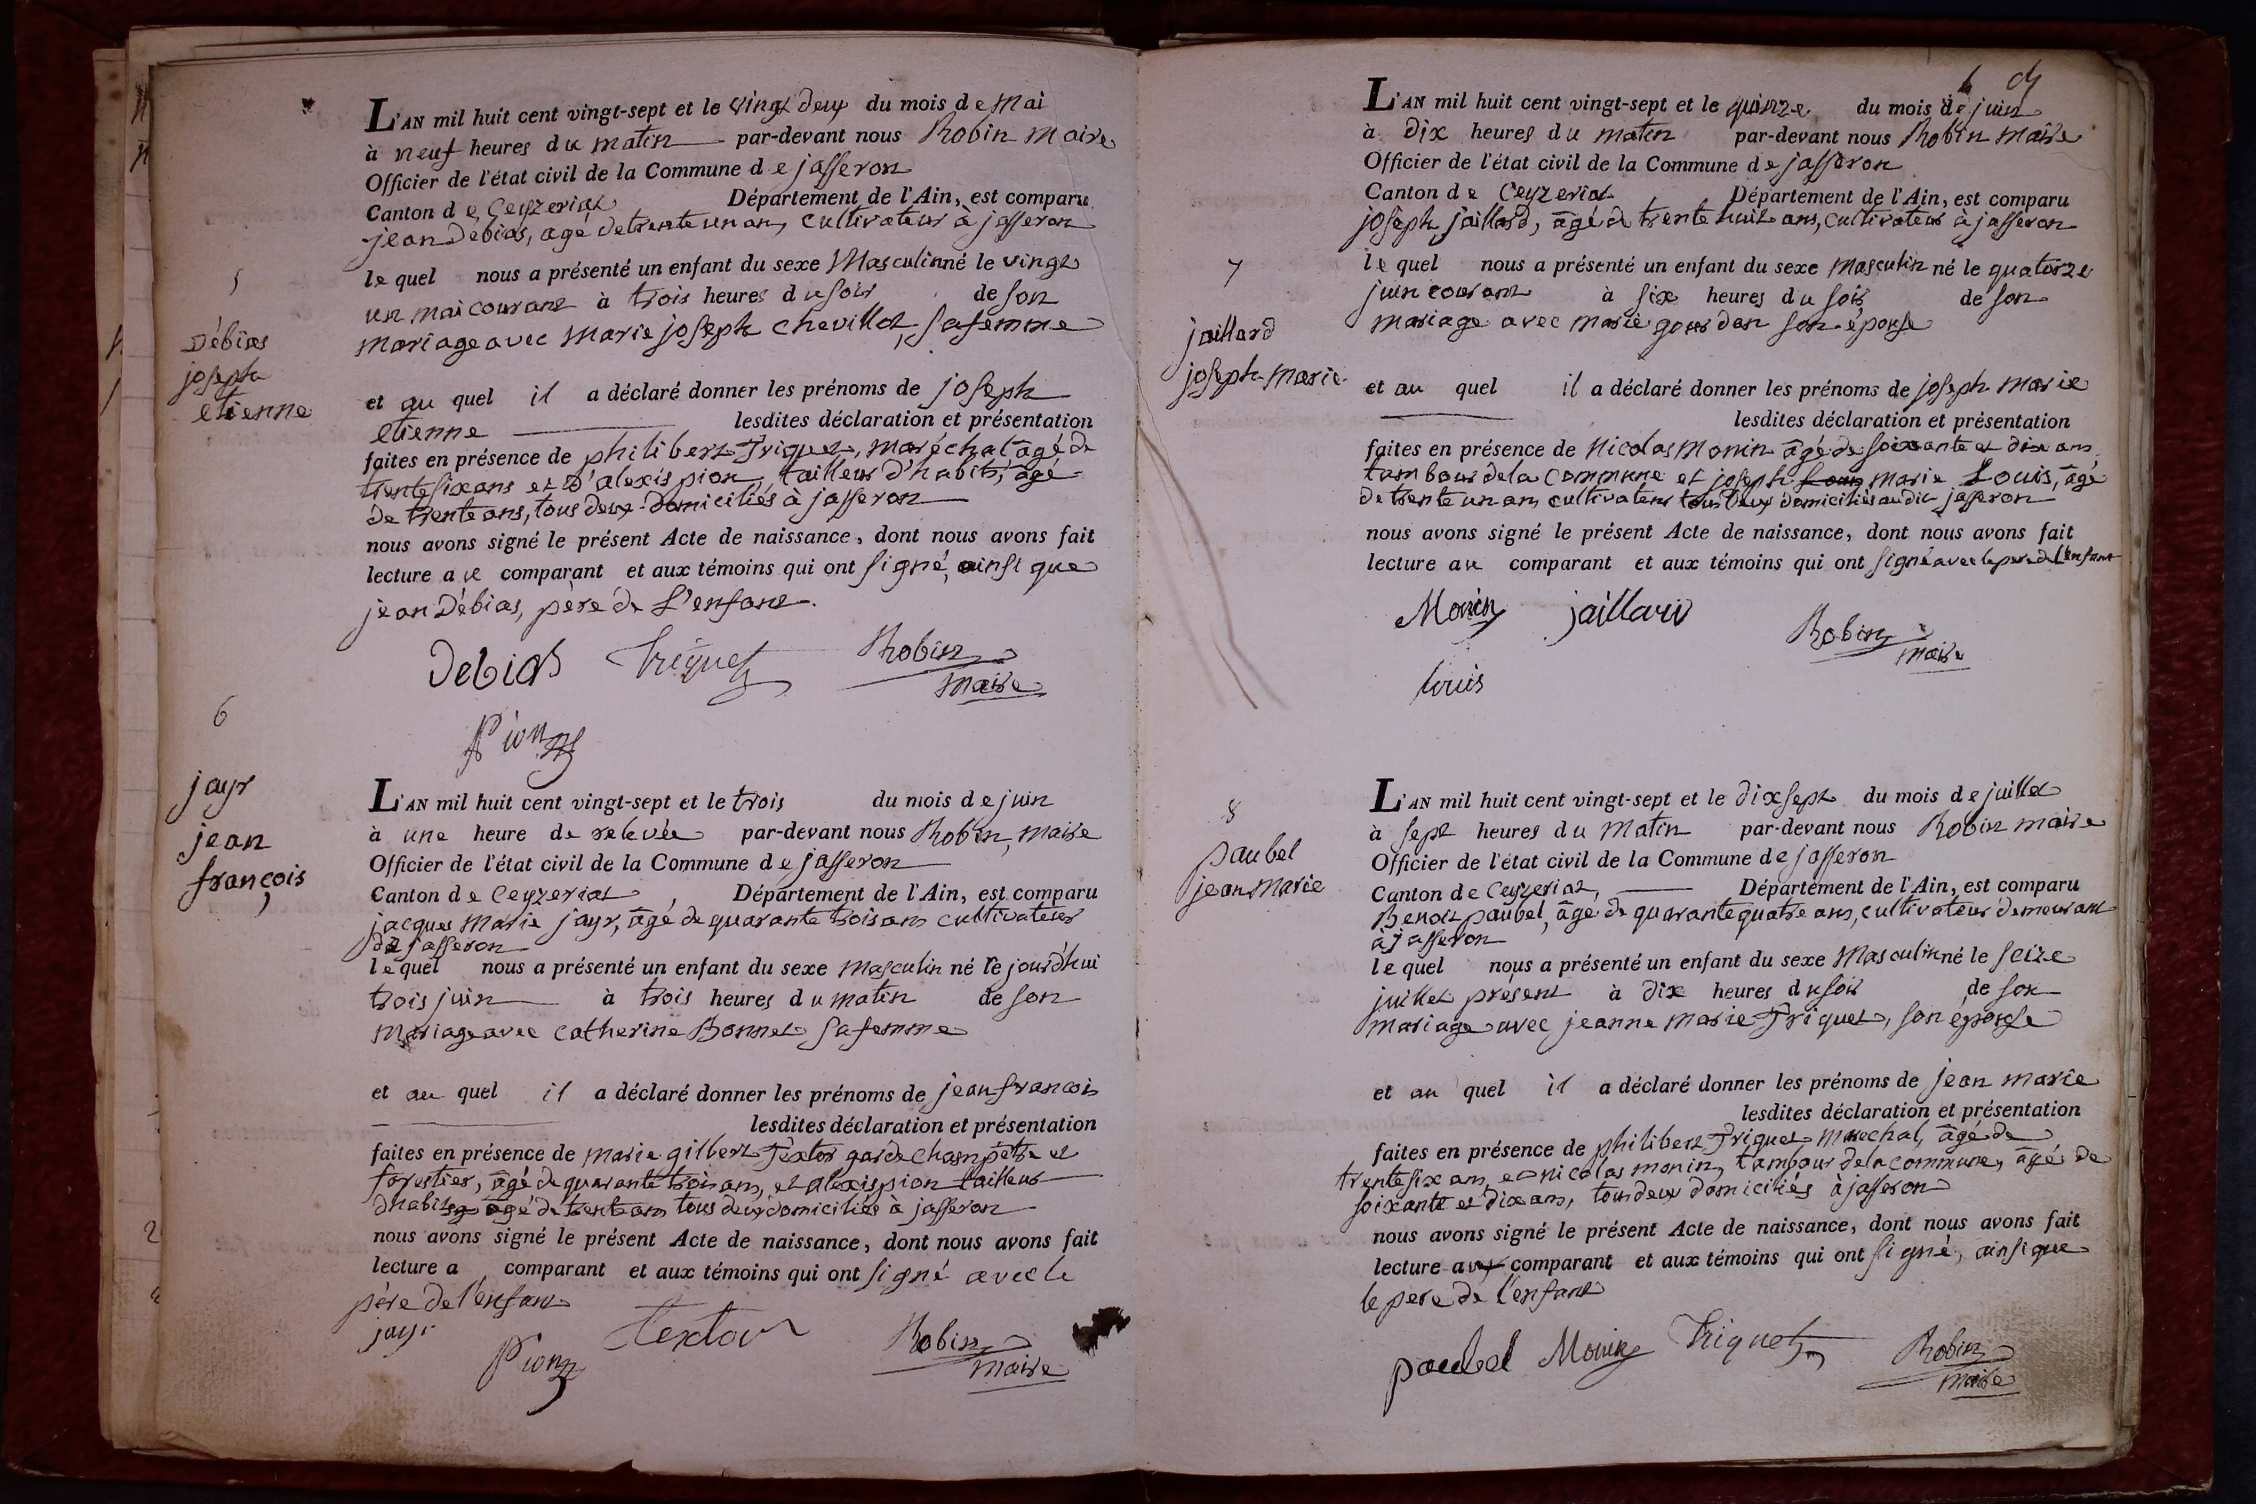 L'AN mil huit cent vingt-sept et le vingt deux du mois de Mai
à neuf heures du matin par-devant nous Robin Maire
Officier de l'état civil de la Commune de jasseron
Canton de Ceyzeriat Département de l'Ain, est comparu
jean Debias, agé de trente un ans, cultivateur à jasseron
5
le quel nous a présenté un enfant du sexe Masculin né le vingt
un mai courant à trois heures du soir de son
mariage avec Marie joseph chevillot, sa femme
Débias
joseph
etienne
et au quel il a déclaré donner les prénoms de joseph
etienne lesdites déclaration et présentation
faites en présence de philibert Friquet, maréchal âgé de
trente six ans et d'alexis pion tailleur d'habits, âgé
de trente ans, tous deux domiciliés à jasseron
nous avons signé le présent Acte de naissance, dont nous avons fait
lecture au comparant et aux témoins qui ont signé, ainsi que
jean Débias, père de L'enfant.
Debias Friquet Robin
maire
Pion
6
jayr
jean
françois
L'AN mil huit cent vingt-sept et le trois du mois de juin
à une heure de relevée par-devant nous Robin, maire
Officier de l'état civil de la Commune de jasseron
Canton de Ceyzeriat, Département de l'Ain, est comparu
jacques Marie jayr, âgé de quarante trois ans cultivateur
de jasseron
le quel nous a présenté un enfant du sexe masculin né le jourd'hui
trois juin à trois heures du matin de son
mariage avec Catherine Bonnet sa femme
et au quel il a déclaré donner les prénoms de jean francois
lesdites déclaration et présentation
faites en présence de marie gilbert Textor garde champêtre et
forestier, âgé de quarante trois ans, et alexis pion tailleur
d'habits âgé de trente ans tous deux domiciliés à jasseron
nous avons signé le présent Acte de naissance, dont nous avons fait
lecture a comparant et aux témoins qui ont signé avec le
père de l'enfant
jayr Pion Textor Robin
maire
6
L'AN mil huit cent vingt-sept et le quinze du mois de juin
à Dix heures du matin par-devant nous Robin maire
Officier de l'état civil de la Commune de jasseron
Canton de Ceyzeriat Département de l'Ain, est comparu
joseph jaillard, âgé de trente huit ans, cultivateur à jasseron
7
le quel nous a présenté un enfant du sexe masculin né le quatorze
juin courant à six heures du soir de son
mariage avec marie gourdan son épouse
jaillard
joseph-marie
et au quel il a déclaré donner les prénoms de joseph marie
lesdites déclaration et présentation
faites en présence de Nicolas Monin âgé de soixante et dix ans
tambour de la commune et joseph Louis marie Louis, âgé
de trente un ans cultivateur tous deux domiciliés audit jasseron
nous avons signé le présent Acte de naissance, dont nous avons fait
lecture au comparant et aux témoins qui ont signé avec le pere de l'enfant
Monin jaillard Robin
maire
Louis
8
paubel
jean marie
L'AN mil huit cent vingt-sept et le dix sept du mois de juillet
à sept heures du Matin par-devant nous Robin maire
Officier de l'état civil de la Commune de jasseron
Canton de Ceyzeriat, Département de l'Ain, est comparu
Benoit paubel, âgé de quarante quatre ans, cultivateur demeurant
à jasseron
le quel nous a présenté un enfant du sexe Masculin né le seize
juillet présent à dix heures du soir de son
mariage avec jeanne marie Friquet, son épouse
et au quel il a déclaré donner les prénoms de jean marie
lesdites déclaration et présentation
faites en présence de philibert Friquet marechal, âgé de
trente six ans, et nicolas monin, tambour de la commune, âgé de
soixante et dix ans, tous deux domiciliés à jasseron
nous avons signé le présent Acte de naissance, dont nous avons fait
lecture au comparant et aux témoins qui ont signé, ainsi que
le pere de l'enfant
paubel Monin Friquet Robin
maire